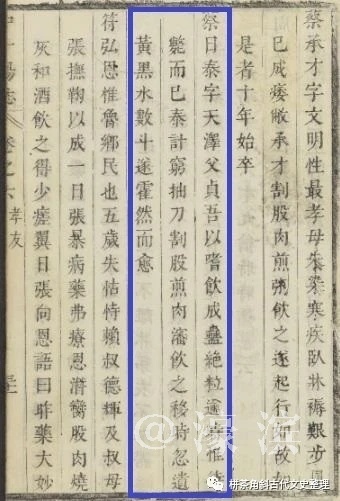 蔡承才字文明性最孝母朱染寒疾卧牀褥艱步
已成痿敝承才割股肉煎粥飲之遂起行如故如
是者十年始卒
蔡日泰字天澤父貞吾以嗜飲成蠱絶粒逾旬惟待
斃而已泰計窮抽刀割股煎肉瀋飲之移時忽遺
黃黑水數斗遂霍然而愈
符弘恩惟魯鄉民也五歲失怙恃賴叔德輝及叔母
張撫鞠以成一日張暴病藥弗療恩潛臠股肉燒
灰和酒飲之得少痊翼日張向恩語曰昨藥大妙
卷之六 孝友
@濠涯
栟茶角斜古代文史整理